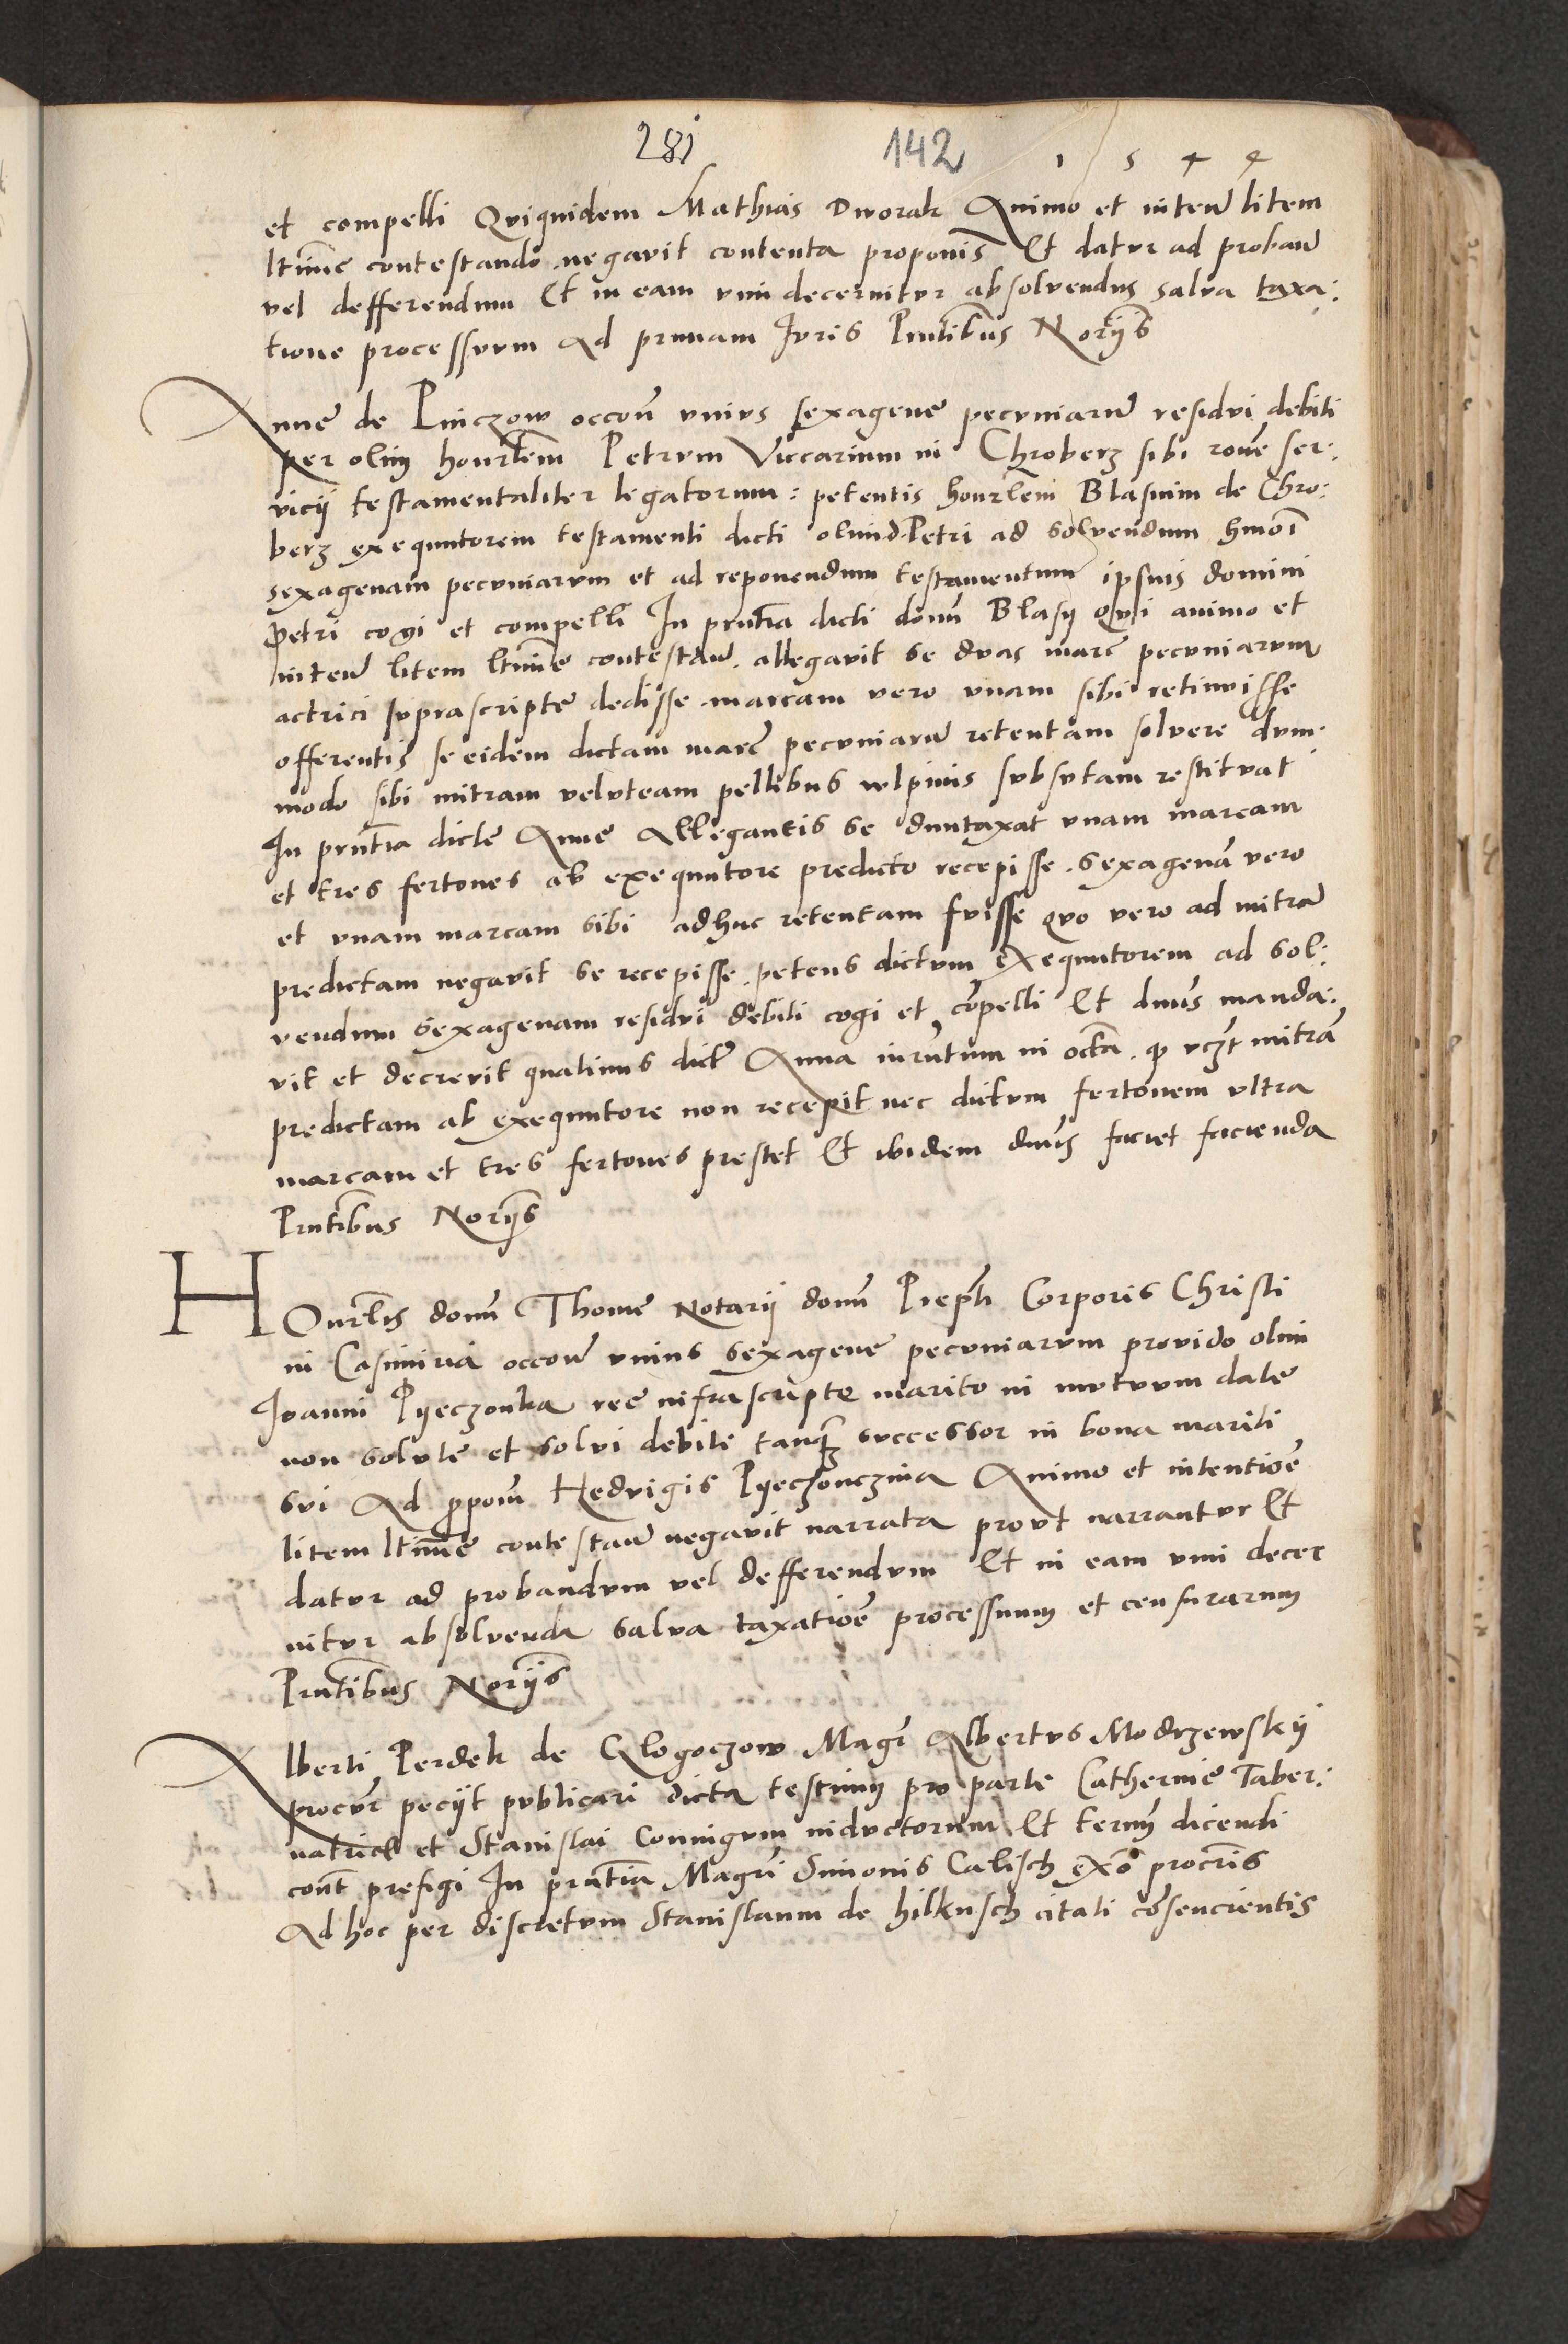 281 142 1 5 4 4
et compelli Quiquidem Mathias Dworak Animo et inten̄ litem
ltim̄e contestando negavit contenta propōnis Et datur ad proban̄
vel defferendum Et in eam vim decernitur absolvendus salva taxa:
tione processuum ad primam Juris Pn̄tibus Norijs
Anne de Pinczow occōn̄ vnius sexagene pecuniarū residui debiti
per olim honr̄lem Petrum Viccarium in Chroberz sibi rōne ser:
vicij testamentaliter legatorum: petentis honr̄lem Blasium de Chro:
berz exequutorem testamenti dicti olim d. Petri ad solvendum hm̄oi
sexagenam pecuniarum et ad reponendum testamentum ipsius domini
Petri cogi et compelli In pn̄tia dicti dōni Blasij Qui animo et
inten̄ litem ltim̄e contestan̄. allegavit se duas marc̄ pecuniarum
actrici suprascripte dedisse marcam vero vnam sibi retinuisse
offerentis se eidem dictam marc̄ pecuniarū retentam solvere dum:
modo sibi mitram veluteam pellibus vulpinis subsutam restituat
In pn̄tia dicte Anne Allegantis se duntaxat vnam marcam
et tres fertones ab exequutore predicto recepisse. sexagenā vero
et vnam marcam sibi adhuc retentam fuisse quo vero ad mitrā
predictam negavit se recepisse. petens dictum exequutorem ad sol:
vendum sexagenam residui debiti cogi et cōpelli Et dn̄us manda:
vit et decrevit quatinus dicta Anna iur̄utum in octa. q̄ vcz̄t mitrā
predictam ab exequutore non recepit nec dictum fertonem vltra
marcam et tres fertones prestet Et ibidem dn̄us faciet facienda
Pn̄tibus Norijs
HOnr̄lis dōni Thome Notarij dōni Prep̄ti Corporis Christi
in Casimiria occōne vnius sexagene pecuniarum provido olim
Joanni Pyeczonka ree infrascripte marito in mutuum date
non solute et solvi debite tanq̄ successor in bona mariti
sui Ad p̄pōm Hedvigis Pyeczonczina Animo et intentiōe
litem ltim̄e contestan̄ negavit narrata prout narrantur Et
datur ad probandum vel defferendum Et in eam vim decer
nitur absolvenda salva taxatiōe processuum et censurarum
Pn̄tibus Norijs
Alberti Perdek de Glogoczow Magr̄ Albertus Modrzewskij
procur̄ peciit publicari dicta testium pro parte Catherine Taber:
natric̄ et Stanislai Coniugum inductorum Et termū dicendi
cont̄ prefigi In pn̄tia Magr̄i Simonis Calisch exō procr̄is
Ad hoc per discretum Stanislaum de hilkusch citati cōsencientis